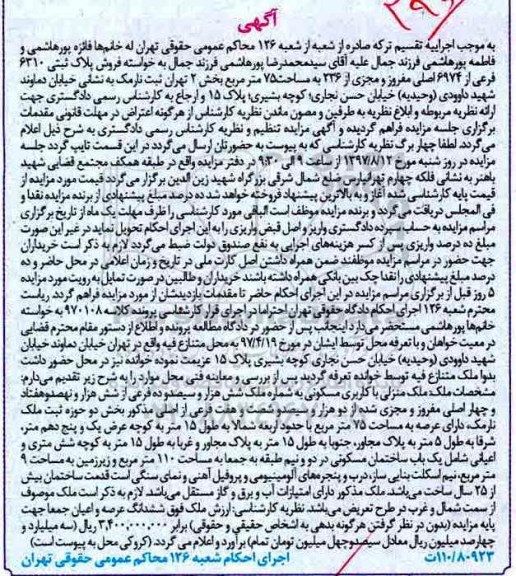 آگهی
به موجب اجراییه تقسیم ترکه صادره از شعبه از شعبه ۱۲۶ محاکم عمومی حقوقی تهران له خانم‌ها فائزه پورهاشمی و
فاطمه پورهاشمی فرزند جمال علیه آقای سیدمحمدرضا پورهاشمی فرزند جمال به خواسته فروش پلاک ثبتی ۶۳۱۰
فرعی از ۶۹۷۴ اصلی مفروز و مجزی از ۲۳۶ به مساحت ۷۵ متر مربع بخش ۲ تهران ثبت نارمک به نشانی خیابان دماوند
شهید داوودی (وحیدیه) خیابان حسن نجاری؛ کوچه بشیری؛ پلاک ۱۵ و ارجاع به کارشناس رسمی دادگستری جهت
ارائه نظریه مربوطه و ابلاغ نظریه به طرفین و مصون ماندن نظریه کارشناس از هرگونه اعتراض در مهلت قانونی مقدمات
برگزاری جلسه مزایده فراهم گردیده و آگهی مزایده تنظیم و نظریه کارشناس رسمی دادگستری به شرح ذیل اعلام
می‌گردد. لطفا چهار برگ نظریه کارشناسی که به پیوست به حضورتان ارسال می‌گردد در این قسمت تایپ گردد جلسه
مزایده در روز شنبه مورخ ۱۳۹۷/۸/۱۲ از ساعت ۹ الی ۹:۳۰ در دفتر مزایده واقع در طبقه همکف مجتمع قضایی شهید
باهنر به نشانی فلکه چهارم تهرانپارس ضلع شمال شرقی بزرگراه شهید زین الدین برگزار می‌گردد قیمت مورد مزایده از
قیمت پایه کارشناسی شده آغاز و به بالاترین پیشنهاد فروخته خواهد شد ده درصد مبلغ پیشنهادی از برنده مزایده نقدا و
فی المجلس دریافت می‌گردد و برنده مزایده موظف است الباقی مورد کارشناسی را ظرف مهلت یک ماه از تاریخ برگزاری
مراسم مزایده به حساب سپرده دادگستری واریز و اصل قبض واریزی را به این اجرای احکام تحویل نماید در غیر این صورت
مبلغ ده درصد واریزی پس از کسر هزینه‌های اجرایی به نفع صندوق دولت ضبط می‌گردد لازم به ذکر است خریداران
جهت حضور در مراسم مزایده موظفند ضمن همراه داشتن اصل کارت ملی در تاریخ و زمان اعلامی در محل حاضر و ده
درصد مبلغ پیشنهادی را نقدا چک بین بانکی همراه داشته باشند خریداران و طالبین در صورت تمایل به رویت مورد مزایده
۵ روز قبل از برگزاری مراسم مزایده در این اجرای احکام حاضر تا مقدمات بازدیدشان از مورد مزایده فراهم گردد. ریاست
محترم شعبه ۱۲۶ اجرای احکام دادگاه حقوقی تهران احتراما در اجرای قرار کارشناسی پرونده کلاسه ۹۷۰۱۰۸ به خواسته
خانم‌ها پورهاشمی مستحضر می‌دارد اینجانب پس از حضور در دادگاه مطالعه پرونده و اطلاع از دستور مقام محترم قضایی
در معیت خواهان و با تعرفه محل توسط ایشان در مورخ ۹۷/۴/۱۹ به محل متنازع فیه واقع در تهران خیابان دماوند خیابان
شهید داوودی (وحیدیه) خیابان حسن نجاری کوچه بشیری پلاک ۱۵ عزیمت نموده خوانده نیز در محل حضور داشت
بدوا ملک متنازع فیه توسط خوانده ترفه گردید پس از بررسی و معاینه فنی محل موارد را به شرح زیر تقدیم می‌دارم:
مشخصات ملک: ملک منزلی با کاربری مسکونی به شماره ملک شش هزار و سیصدو ده فرعی از شش هزار و نهصدوهفتاد
و چهار اصلی مفروز و مجزی شده از دو هزار و سیصد و شصت و هفت فرعی از اصلی مذکور بخش دو حوزه ثبت ملک
نارمک، دارای عرصه به مساحت ۷۵ متر مربع با حدود اربعه شمالا به طول ۱۵ متر به کوچه عرض یک و پنج دهم متر،
شرقا به طول ۵ متر به پلاک مجاور، جنوبا به طول ۱۵ متر به پلاک مجاور و غربا به طول ۱۵ متر به کوچه شش متری و
اعیانی شامل یک باب ساختمان مسکونی در دو و نیم طبقه به جمعا به مساحت ۱۱۰ متر مربع و زیرزمین به مساحت ۹
متر مربع، نیم اسکلت بنایی ساز، درب و پنجره‌های آلومینیومی و پروفیل آهنی و نمای سنگی است قدمت ساختمان بیش
از ۲۵ سال ساخت می‌باشد. ملک مذکور دارای امتیازات آب و برق و گاز مستقل می‌باشد. لازم به ذکر است ملک موصوف
از سمت شمال و غرب در طرح تعریض می‌باشد. نظریه کارشناسی: ارزش ملک فوق ششدانگ عرصه و اعیان جمعا جهت
پایه مزایده (بدون در نظر گرفتن هرگونه بدهی به اشخاص حقیقی و حقوقی) برابر ۳،۴۰۰،۰۰۰،۰۰۰ ریال (سه میلیارد و
چهارصد میلیون ریال معادل سیصدوچهل میلیون تومان تمام) برآورد و اعلام می گردد. (کروکی محل به پیوست است)
۱۱۰/۸۰۹۲۳ت
اجرای احکام شعبه ۱۲۶ محاکم عمومی حقوقی تهران